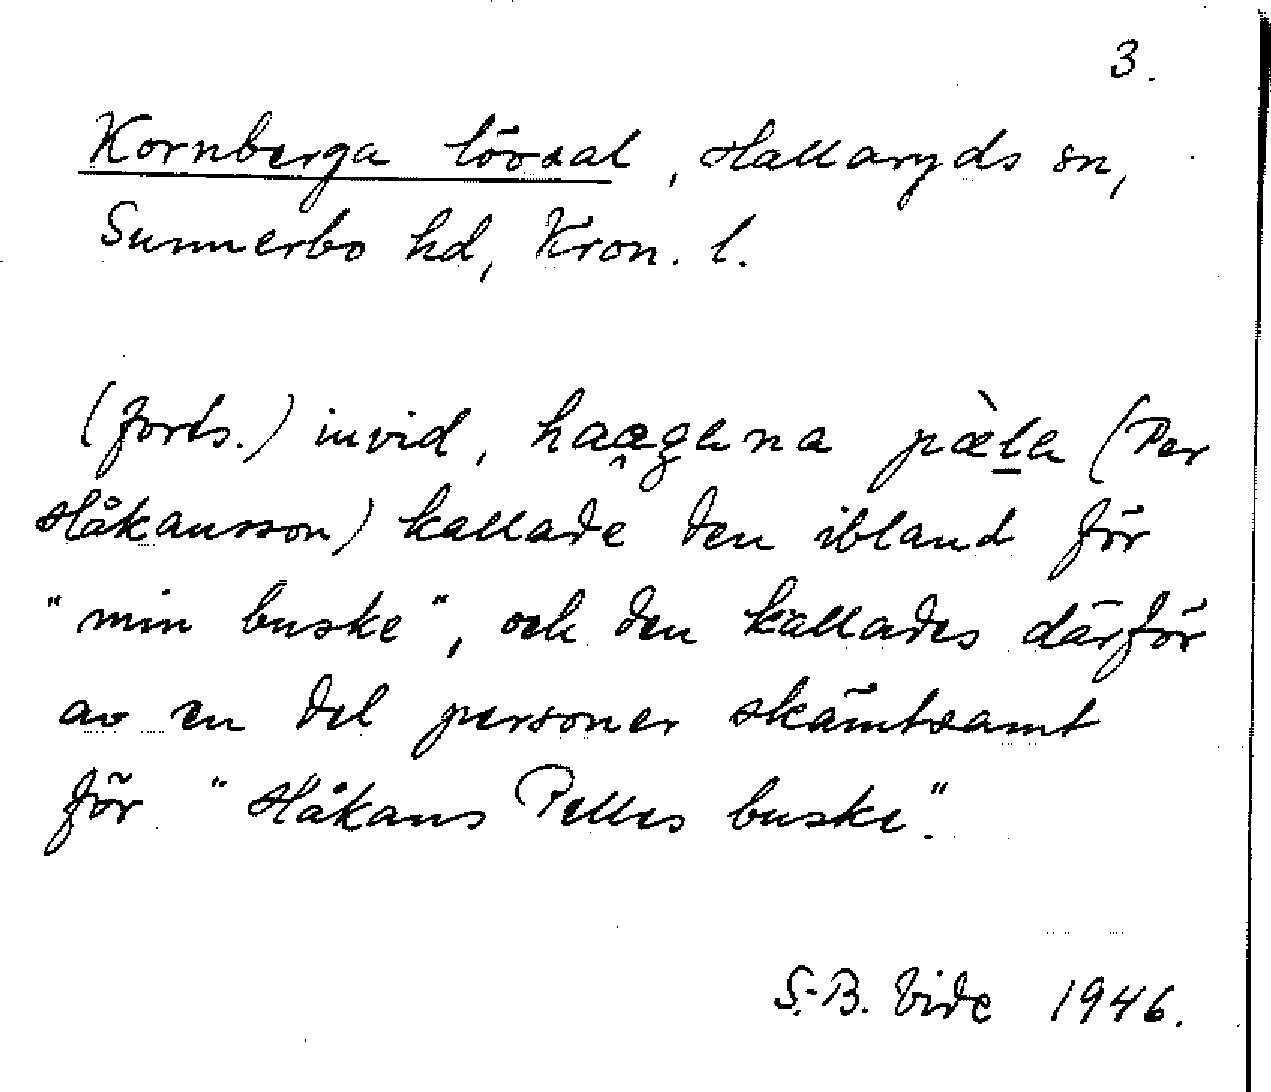 3.
Kornberga lövsal, Hallaryds sn,
Sunnerbo hd, Kron. l.
(forts.) invid, haægana pæ̀la (Per
Håkansson) kallade den ibland för
"min buske", och den kallades därför
av en del personer skämtsamt
för "Håkans Pelles buske".
S.-B. Vide 1946.